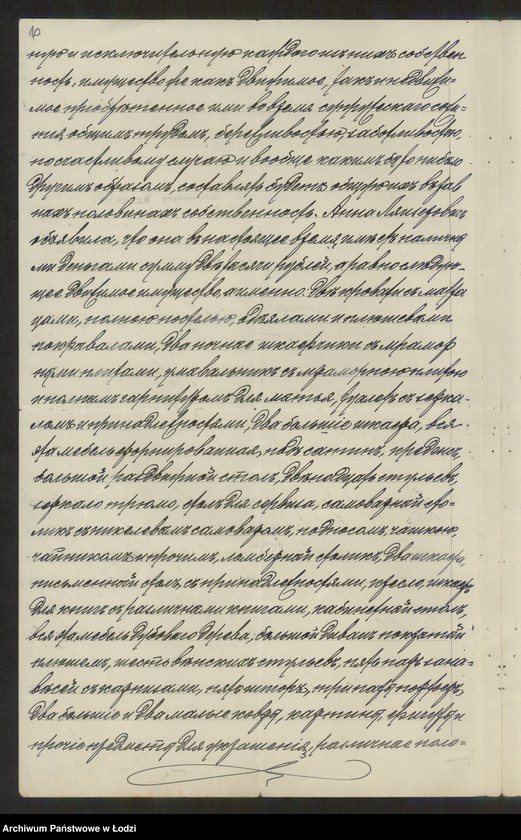 10
ную и исключительную каждого изъ нихъ собствен
ность, имущество же какъ движимое, такъ и недвижи-
мое пріобрѣтенное ими во время супружескаго сожи-
тія общимъ трудомъ, бережливостью, заботливостью,
по счастливому случаю и вообще какимъ бы то ни было
другимъ образомъ, составлять будетъ общую ихъ въ рав
ныхъ половинахъ собственность. Анна
объявила, что она въ настоящее время имѣетъ наличны
ми деньгами сумму двѣ тысячи рублей, а равно слѣдую-
щее движимое имущество, а именно: двѣ кровати съ матра
цами, полною постелью, одѣялами и плюшевыми
покрывалами, два ночные шкафчики съ мрамор
ными плитами, умывальникъ съ мраморною плитою
и полнымъ гарнитуромъ для мытья, туалетъ съ зерка-
ломъ и принадлежностями, два большіе шкафа, вся
эта мебель форнированная, подъ сатинъ, креденсъ,
большой раздвижной столъ, двѣнадцать стульевъ,
зеркало трюмо, столъ для сервиза, самоварный сто-
ликъ съ никелевымъ самоваромъ, подносомъ, чашкою,
чайникомъ и прочимъ, ломберный столикъ, два шкафа,
письменный столъ, съ принадлежностями, кресло, шкафъ
для книгъ съ различными книгами, кабинетный столъ,
вся эта мебель дубоваго дерева, большой диванъ покрытый
плюшемъ, шесть вѣнскихъ стульевъ, пять паръ зана-
вѣсей съ карнизами, пять шторъ, три пары портьеръ,
два большіе и два малые ковра, картины, фигуры и
прочіе предметы для украшенія, различное поло-
Archiwum Państwowe w Łodzi